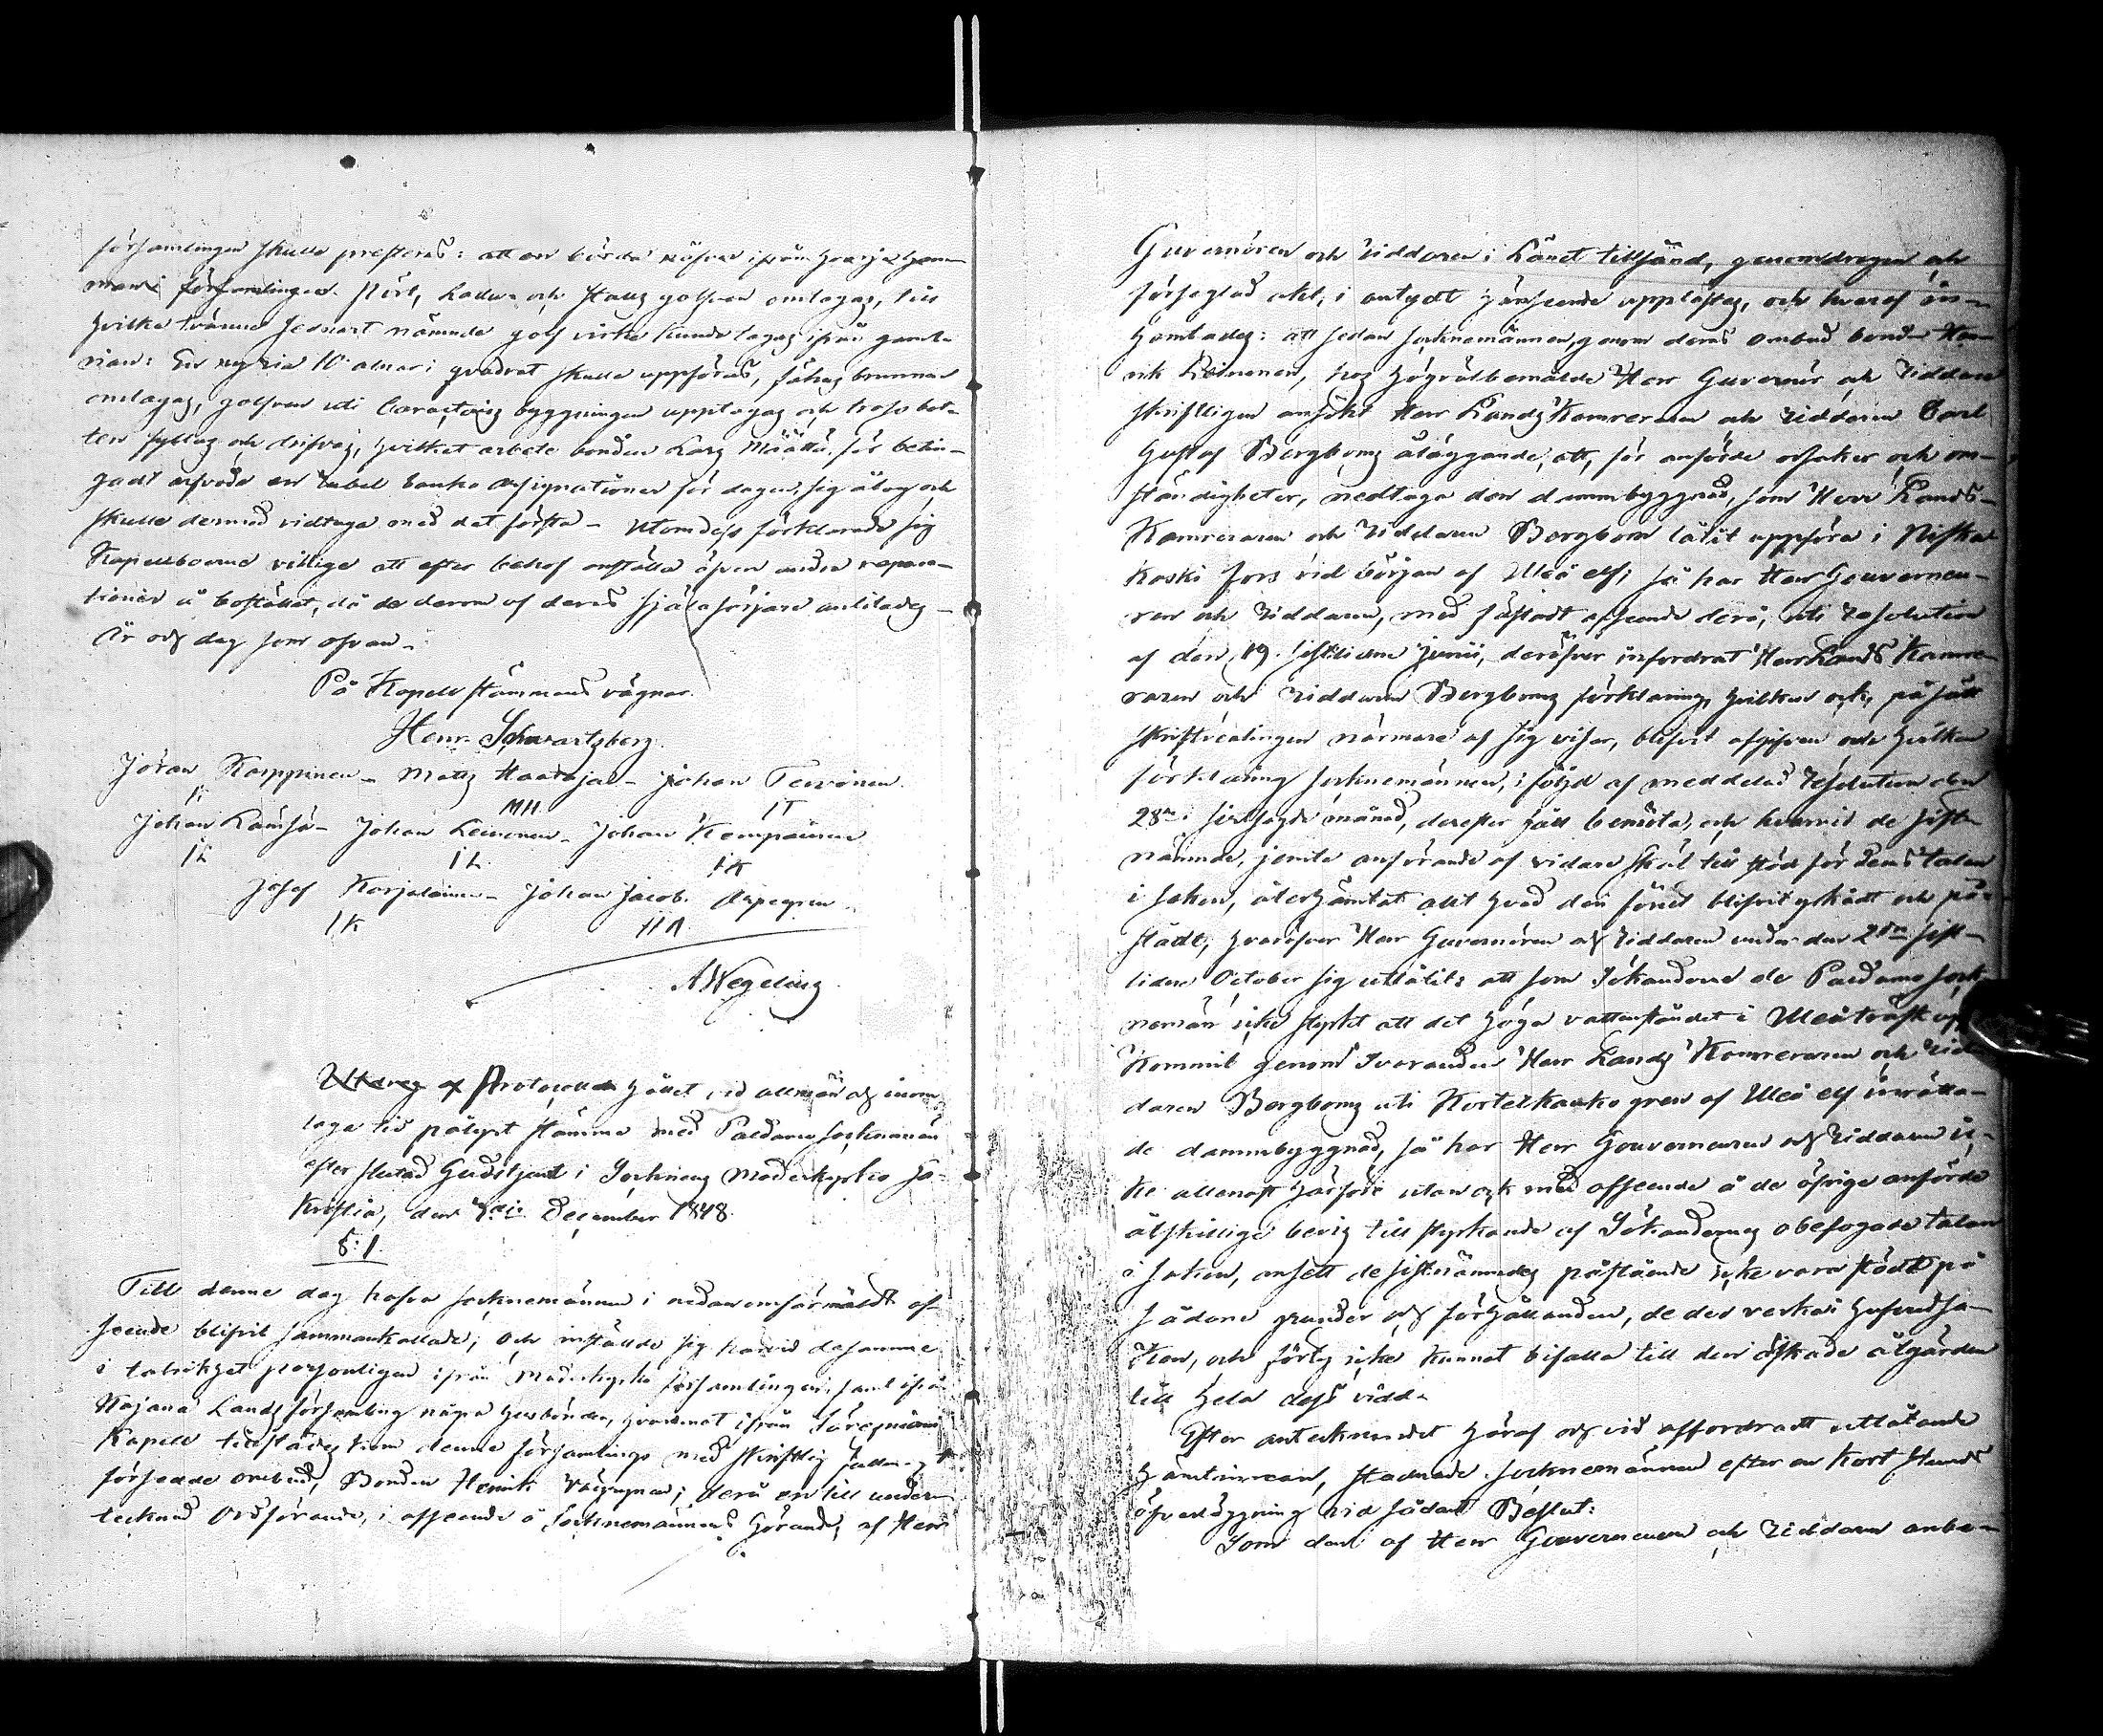 församlingen skulle presteras: att en börda näfver ifrån hvarje hem-
man i församlingen. Pört, Ladu- och Stalls golfven omlagas, till
hvilka tvänne sednast nämnde golf virke kunde tagas ifrån gamla
rian: En ny ria 10 alnar i qvadrat skulle uppföras, fähus brunnen
omlagas, golfven uti byggningen upptagas och trossbot-
ten fyllas och drifvas, hvilket arbete bonden Lars Määttä för betin-
gadt arfvode en rubel banko assignationer för dagen, sig åtog och
skulle dermed vidtaga med det första - Utomdess förklarade sig
Kapellboerne villige att efter behof anställa äfven andra repara-
tioner å bostället, då de derom af deras Själasörjare anlitades -
År och dag som ofvan -
På Kapell stämmans vägnar.
Henr. Schwartzberg.
Jöran Karppinen - Matts Haataja - Johan Tervonen.
MH IT
Johan Lämsä - Johan Leinonen - Johan Kompainen
IL IL IK
Josef Karjalainen - Johan Jacob. Aspegren.
IK
A Wegelius
Utdrag af Protocoll hållet vid allmän och inom
laga tid pålyst stämma med Paldamo Socknemän
efter slutad Gudstjenst i Socknens Moderkyrkas Sa-
kristia, den December 1848.
§: 1.
Till denne dag hafva socknemännen i nedanomförmäldt af-
seende blifvit sammankallade; och inställde sig härvid desamme
i talrikhet personligen ifrån Moderkyrko församlingen, samt ifrån
Kajana Landsförsamling några husbönder, hvaremot ifrån Säresniemi
Kapell tillstädes kom denne församlings med skriftlig fullmagt
försedde ombud, Bonden Henrik ; derå en till under-
tecknad Ordförande, i afseende å Socknemännens hörande, af Herr
Guvernören och Riddaren i Länet tillsänd, genomdragen och
förseglad akt, i antydt hänseende upplästes, och hvaraf in-
hämtades: att sedan socknemännen, genom deras ombud bonden Hen-
rik Leinonen, hos högvälbemälde Herr Guvernör och Riddare
skriftligen ansökt Herr Lands Kamreraren och Riddaren Carl
Gustaf Bergboms åläggande, att, för anförde orsaker och om-
ständigheter, nedtaga den dammbyggnad, som Herr Lands-
Kamreraren och Riddaren Bergbom låtit uppföra i Niska
Koski fors vid början af Uleå elf; så har Herr Gouverneu-
ren och Riddaren, med fästadt afseende derå, uti resolution
af den 19. sistlidne Junii, deröfver infordrat Herr Lands Kamre-
raren och Riddaren Bergboms förklaring, hvilken ock, på sätt
skriftvexlingen närmare af sig viser, blifvit afgifven och hvilken
förklaring socknemännen, i följd af meddelad resolution den
28de i sistsagde månad, derefter fått bemöta, och hvarvid de sist-
nämnde, jemte anförande af vidare skäl till stöd för deras talan
i saken, återhämtat allt hvad den förut blifvit yrkadt och på-
stådt; hvaröfver Herr Guvernören och Riddaren under den sist-
liden October sig utlåtit: att som Sökanderne de Paldamo sock-
nemän icke styrkt att det höga vattenståndet i Uleåträsk upp-
kommit genom Svaranden Herr Lands Kamreraren och Rid-
daren Bergboms uti Kurtelkaske gren af Uleå elf inrätta-
de dammbyggnad, så har Herr Gouverneuren och Riddaren ic-
ke allenast härföre utan ock med afseende å de öfrige anförde
åtskillige bevis till styrkande af Sökandernes obefogade talan
i saken, ansett de sistnämndes påstående icke vara stödt på
sådane grunder och förhållanden, de der verka i hufvudsa-
ken, och förty icke kunnat bifalla till den äskade åtgärden
till hela dess vidd -
Efter antecknandet häraf och vid affordradt utlåtande
härutinnan, stadnade socknemännen efter en kort stunds
öfverläggning vid sådant Beslut:
Som den af Herr Gouverneuren och Riddaren anbe-